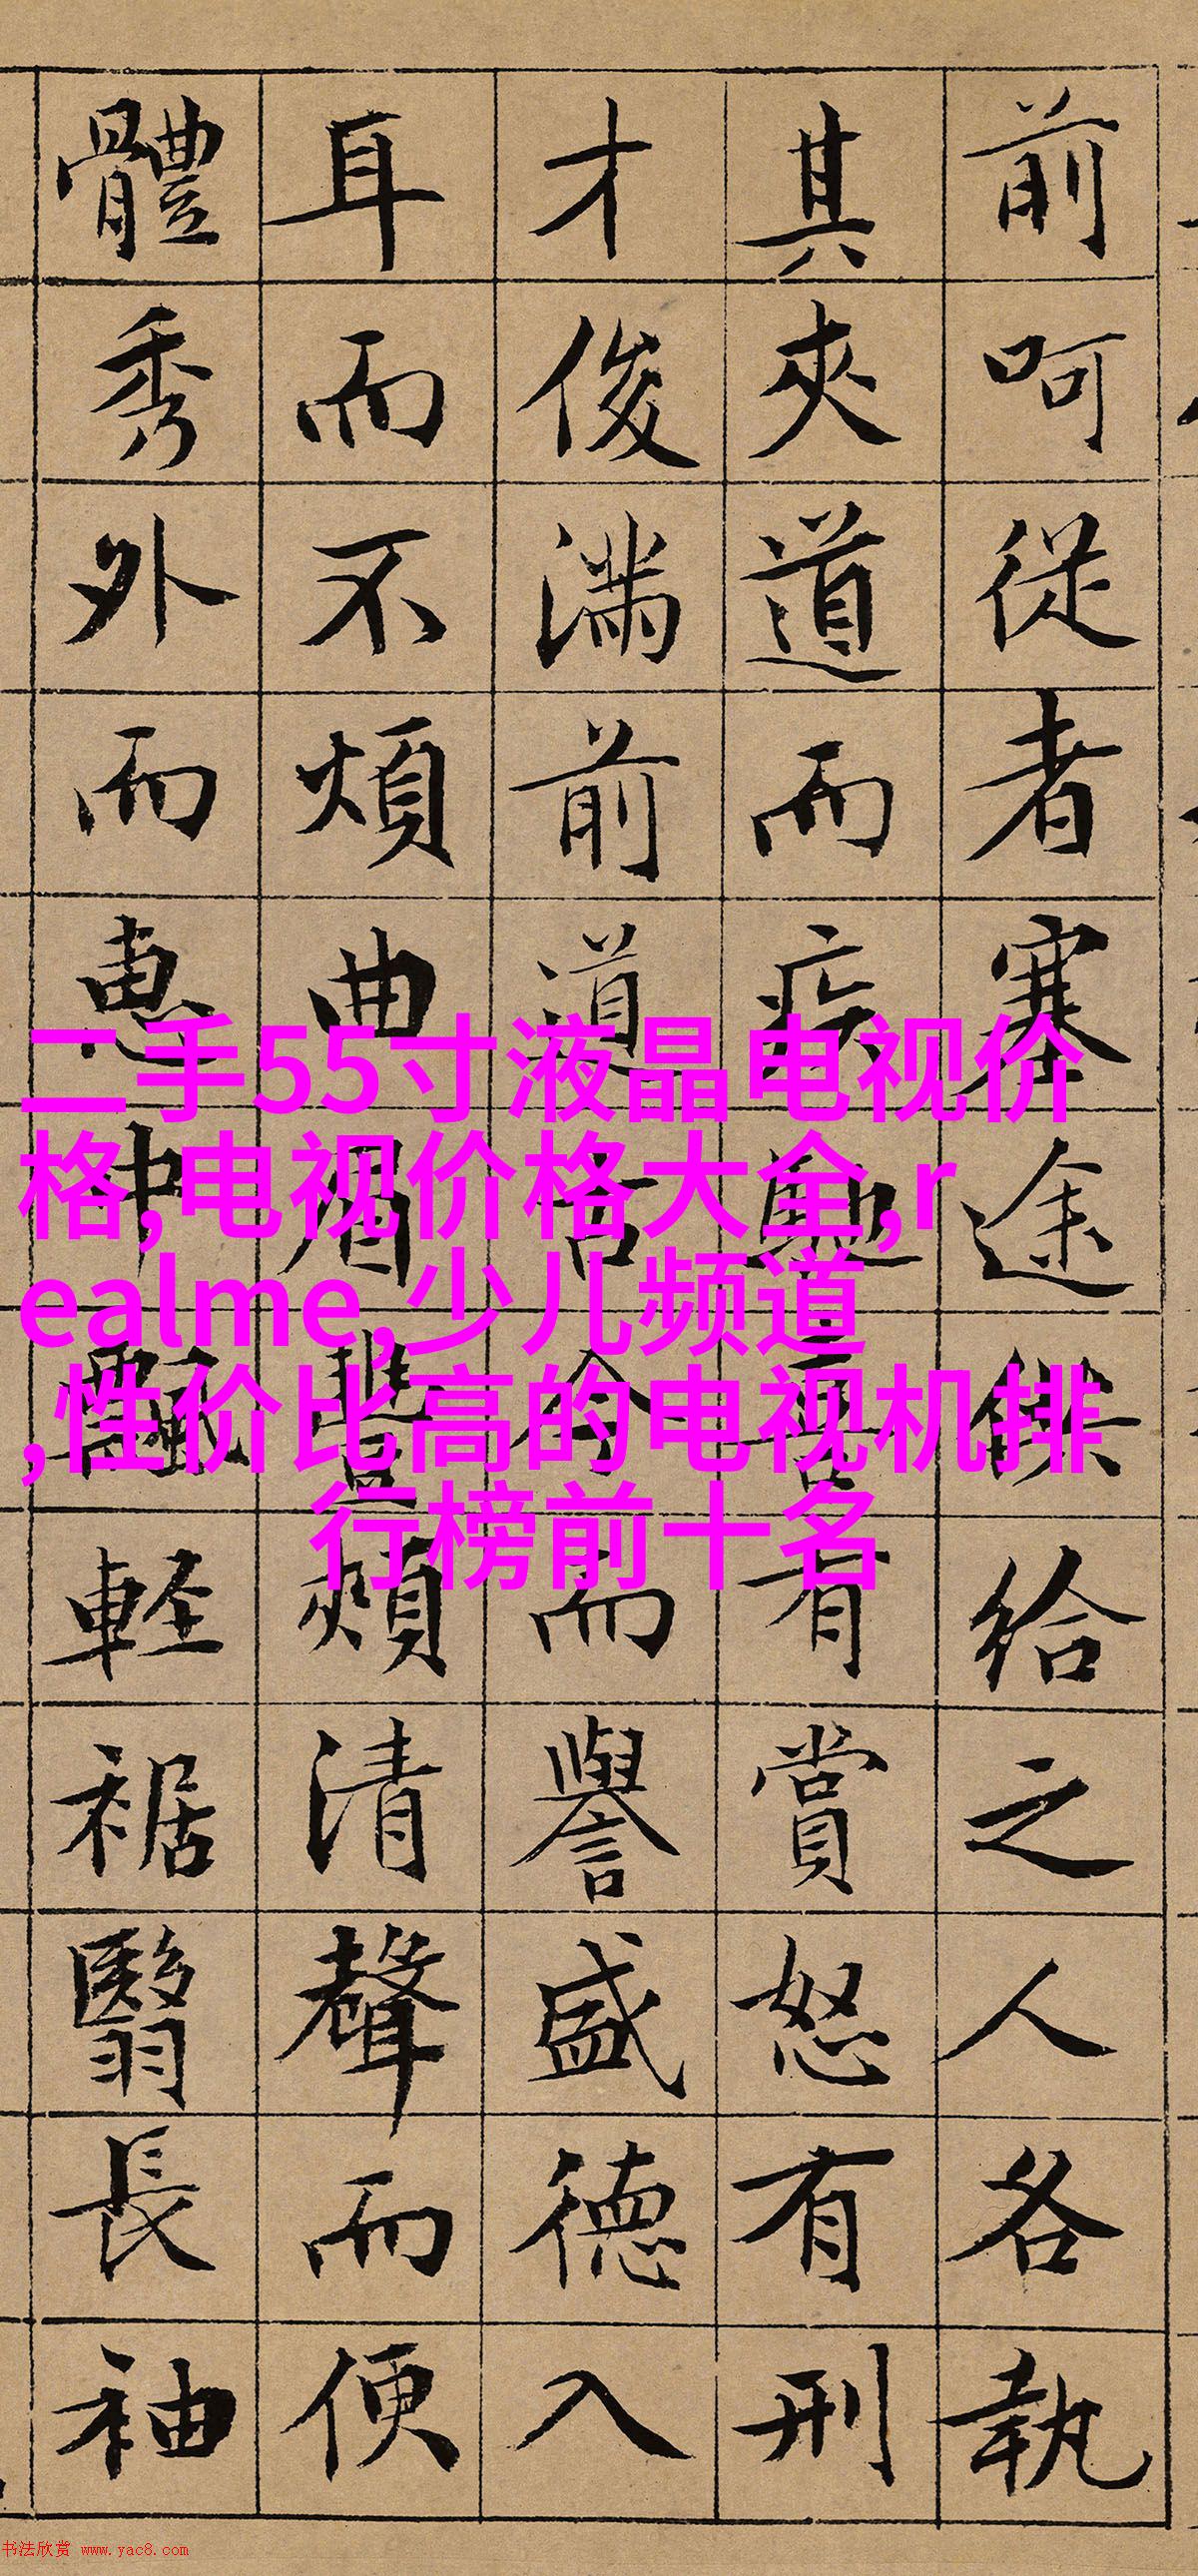 前呵從者塞途供給之人各執
其夾道而疾馳喜有賞怒有刑
才俊滿前道古今而譽盛德入
耳而不煩曲眉豐頰清聲而便
體秀外而惠中飄輕裾翳長袖
二手55寸液晶电视价
格,电视价格大全,r
ealme,少儿频道
,性价比高的电视机排
行榜前十名
书法欣赏 www.yac8.com